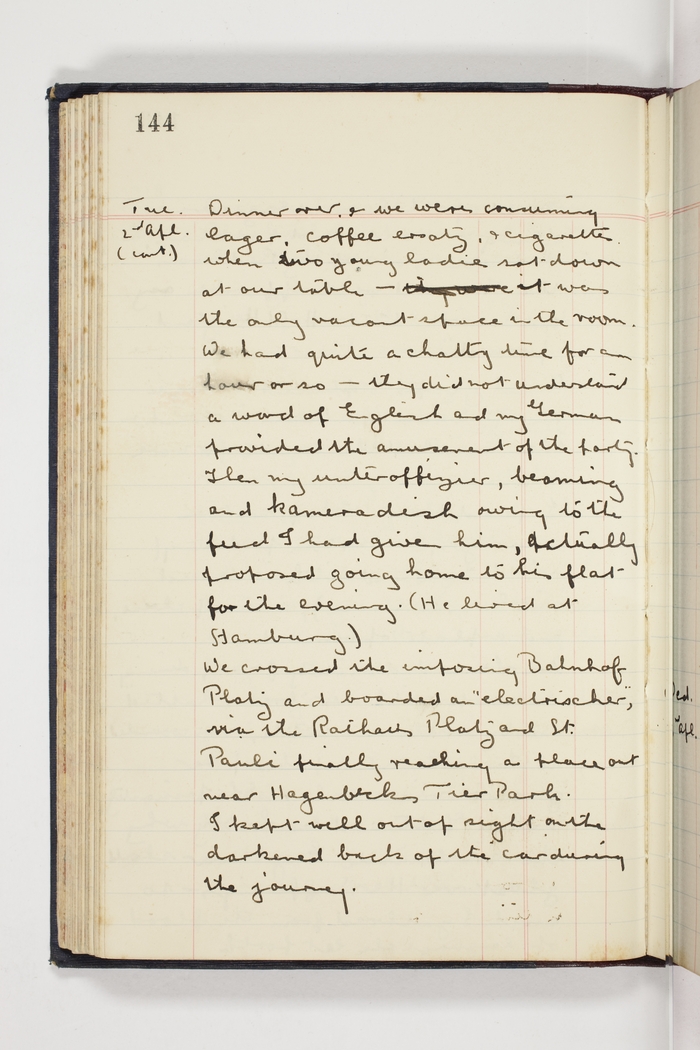 144
Tue. Dinner over, & we were consuming
2nd Apl. lager, coffee ersatz, & cigarettes
(cont.) when two young ladie sat down
at our table — it was
the only vacant space in the room.
We had quite a chatty time for an
hour or so — they did not understand
a word of English and my German
provided the amusement of the party.
Then my unteroffizier, beaming
and kameradish owing to the
feed I had given him, actually
proposed going home to his flat
for the evening. (He lived at
Hamburg.)
We crossed the imposing Bahnhof
Platz and boarded an "electrischer",
via the Rathaus Platz and St.
Pauli finally reaching a place out
near Hagenbecks Tier Park.
I kept well out of sight on the
darkened back of the car during
the journey.
Apl.